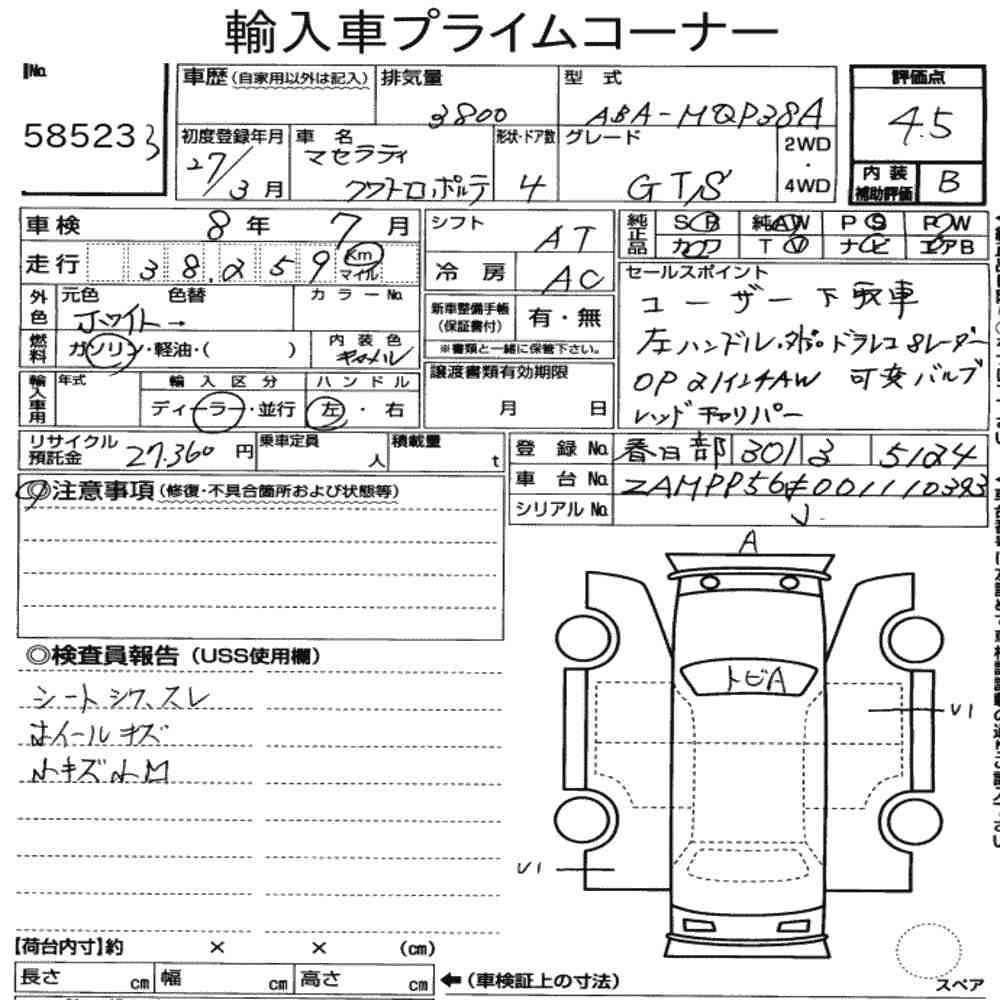 輸入車プライムコーナー
No.
58523 3
車歴(自家用以外は記入)
排気量
3800
型 式
ABA-MQP38A
評価点
4.5
初度登録年月
27/3月
車 名
マセラティ
クワトロポルテ
形状・ドア数
4
グレード
GT/S
2WD
・
4WD
内 装
補助評価
B
車検 8年 7月
走行 38,259 Km
マイル
シフト AT
冷 房 AC
純正品
SR 純AW PS PW
カワ TV ナビ エアB
外色 元色 色替 カラーNo.
ホワイト→
燃料 ガソリン・軽油・( )
内 装 色
キャメル
新車整備手帳
(保証書付)
有・無
※書類と一緒に保管下さい。
セールスポイント
ユーザー下取車
左ハンドル.外ポ ドラレコ 8レーダー
OP 21インチAW 可変バルブ
レッドキャリパー
輸入車用 年式
輸 入 区 分
ディーラー・並行
ハ ン ド ル
左・右
譲渡書類有効期限
月 日
リサイクル
預託金 27.360 円
乗車定員 人
積載量 t
登 録 No. 春日部 301 3 5134
車 台 No. ZAMPP56F001110393
シリアルNo. J
◎注意事項(修復・不具合箇所および状態等)
◎検査員報告(USS使用欄)
シートシワ、スレ
ホイールキズ
小キズ小凹
A
トビA
U1
U1
【荷台内寸】約 × × (cm)
長さ cm 幅 cm 高さ cm
←(車検証上の寸法)
スペア